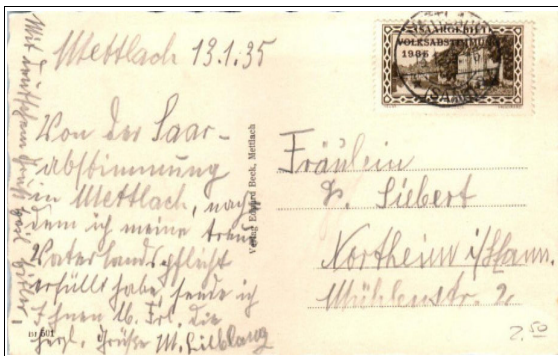 Mettlach 13.1.35
Von der Saar-
abstimmung
in Mettlach, nach
dem ich meine treue
Vaterlandspflicht
erfüllt habe sende ich
Ihnen lb. Frl. die
herzl. Grüße M. Lieblang
Mit deutschem Gruß Heil Hitler!
BI 601
Verlag Eduard Beck, Mettlach
SAARGEBIET
VOLKSABSTIMMUNG
Fräulein
Siebert
Northeim i/Hann.
Mühlenstr. 2
2.50